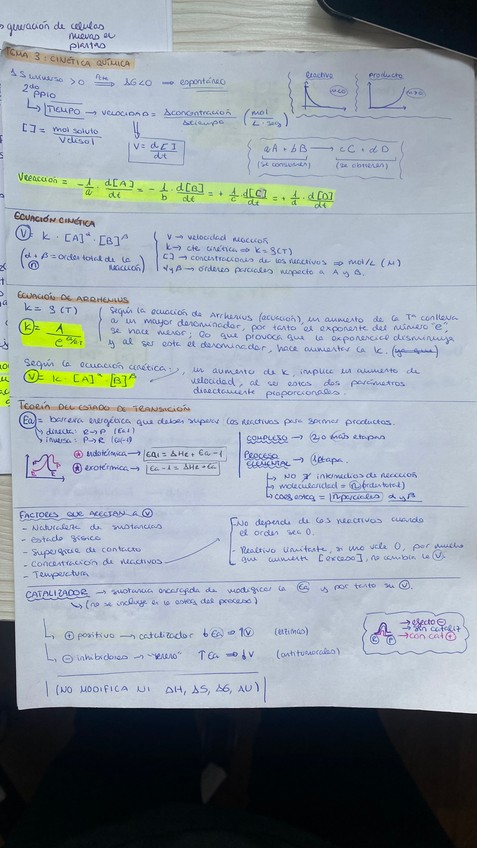 generación de células
nuevas en
plantas
TEMA 3: CINÉTICA QUÍMICA
ΔS universo > 0 ⟹ ΔG<0 → espontáneo
2do
PPIO
↳ TIEMPO → VELOCIDAD = Δconcentración / Δtiempo (mol / L·seg)
[ ] = mol soluto / V disol
V = d[ ] / dt
Reactivo
Producto
aA + bB → cC + dD
(se consumen) (se obtienen)
Vreacción = - 1/a · d[A]/dt = - 1/b · d[B]/dt = + 1/c · d[C]/dt = + 1/d · d[D]/dt
ECUACIÓN CINÉTICA
V = k · [A]^α · [B]^β
(α + β = orden total de la reacción)
(n)
V → velocidad reacción
k → cte cinética ⇒ k = f(T)
[ ] → concentraciones de los reactivos ⇒ mol/L (M)
α y β → órdenes parciales respecto a A y B.
ECUACIÓN DE ARRHENIUS
k = f (T)
k = A / e^(Ea/RT)
Según la ecuación de Arrhenius (ecuación), un aumento de la Tª conlleva
a un mayor denominador, por tanto el exponente del número "e",
se hace menor; lo que provoca que la exponencial disminuya
y al ser este el denominador, hace aumentar la k.
Según la ecuación cinética:
V = k · [A]^α · [B]^β
un aumento de k, implica un aumento de
velocidad, al ser estos dos parámetros
directamente proporcionales.
TEORÍA DEL ESTADO DE TRANSICIÓN
Ea = barrera energética que deben superar los reactivos para formar productos.
↳ directa: R→P (Ea1)
↳ inversa: P→R (Ea-1)
endotérmica → Ea1 = ΔHr + Ea-1
exotérmica → Ea-1 = ΔHr + Ea
COMPLEJO → 2 o más etapas
PROCESO
ELEMENTAL → 1 etapa.
↳ NO ∄ intermedios de reacción
↳ molecularidad = n (orden total)
↳ coef esteq = n parciales α y β
FACTORES QUE AFECTAN A V
- Naturaleza de sustancias
- estado físico
- Superficie de contacto
- Concentración de reactivos
- Temperatura
No depende de los reactivos cuando
el orden sea 0.
- Reactivo limitante, si uno vale 0, por mucho
que aumente [exceso], no cambia la V.
CATALIZADOR → sustancia encargada de modificar la Ea y por tanto su V.
↳ (no se incluye en la esteq del proceso)
↳ ⊕ positivo → catalizador ↓Ea ⇒ ↑V (enzimas)
↳ ⊖ inhibidores → "veneno" ↑Ea ⇒ ↓V (antitumorales)
→ efecto ⊖
→ sin cataliz
→ con cat ⊕
R P
(NO MODIFICA NI ΔH, ΔS, ΔG, ΔU)